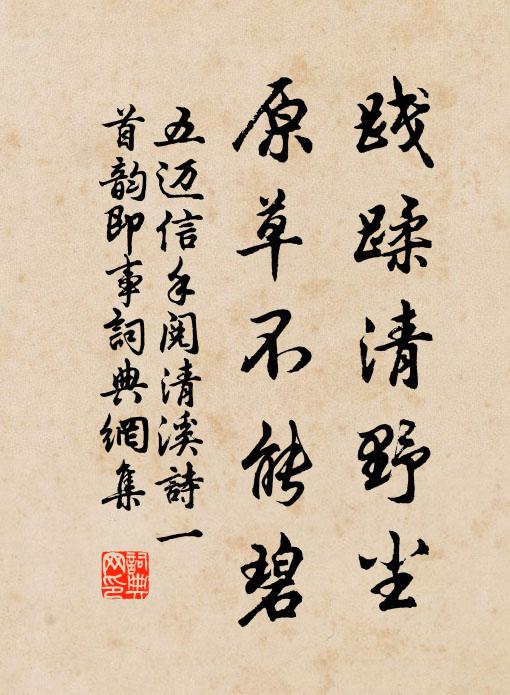 践蹂清野尘
原草不能碧
五迈信手阅清溪詩一
首韵即事詞典網集
詞典
网印